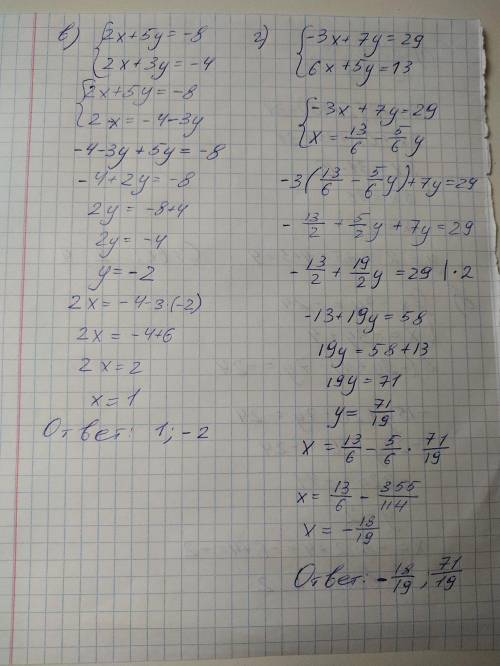 в) { 2x+5y=-8
2x+3y=-4
{ 2x+5y=-8
2x=-4-3y
-4-3y+5y=-8
-4+2y=-8
2y=-8+4
2y=-4
y=-2
2x=-4-3·(-2)
2x=-4+6
2x=2
x=1
Ответ: 1; -2
г) { -3x+7y=29
6x+5y=13
{ -3x+7y=29
x=13/6-5/6y
-3(13/6-5/6y)+7y=29
-13/2+5/2y+7y=29
-13/2+19/2y=29 |·2
-13+19y=58
19y=58+13
19y=71
y=71/19
x=13/6-5/6·71/19
x=13/6-355/114
x=-18/19
Ответ: -18/19, 71/19